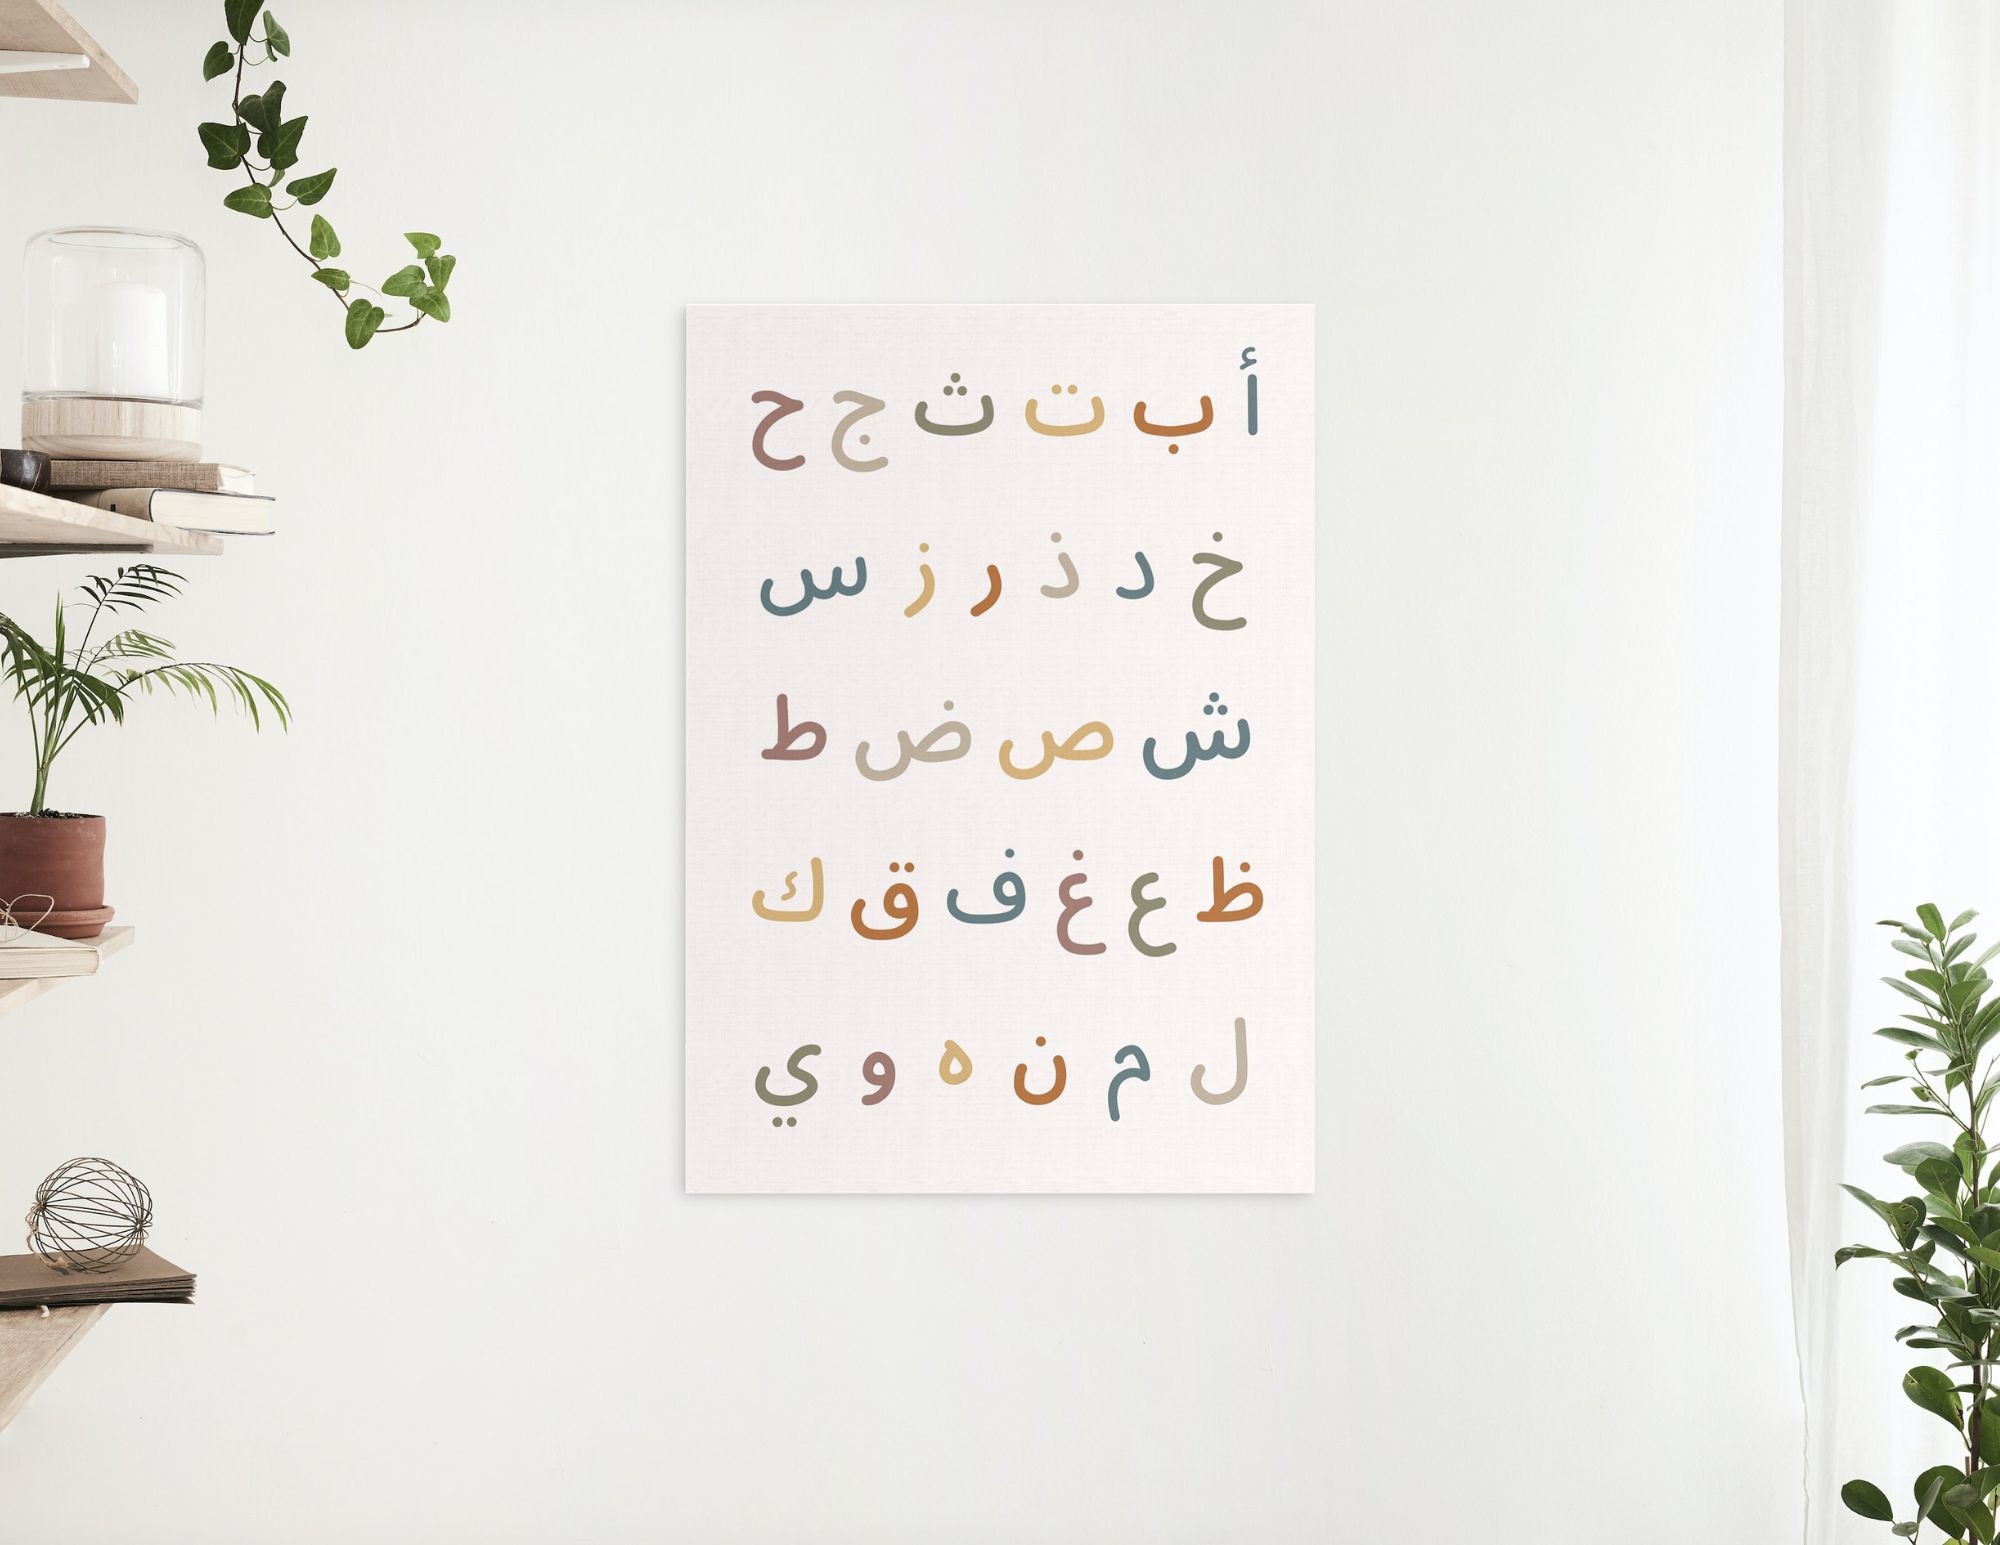 أ ب ت ث ج ح
خ د ذ ر ز س
ش ص ض ط
ظ ع غ ف ق ك
ل م ن ه و ي